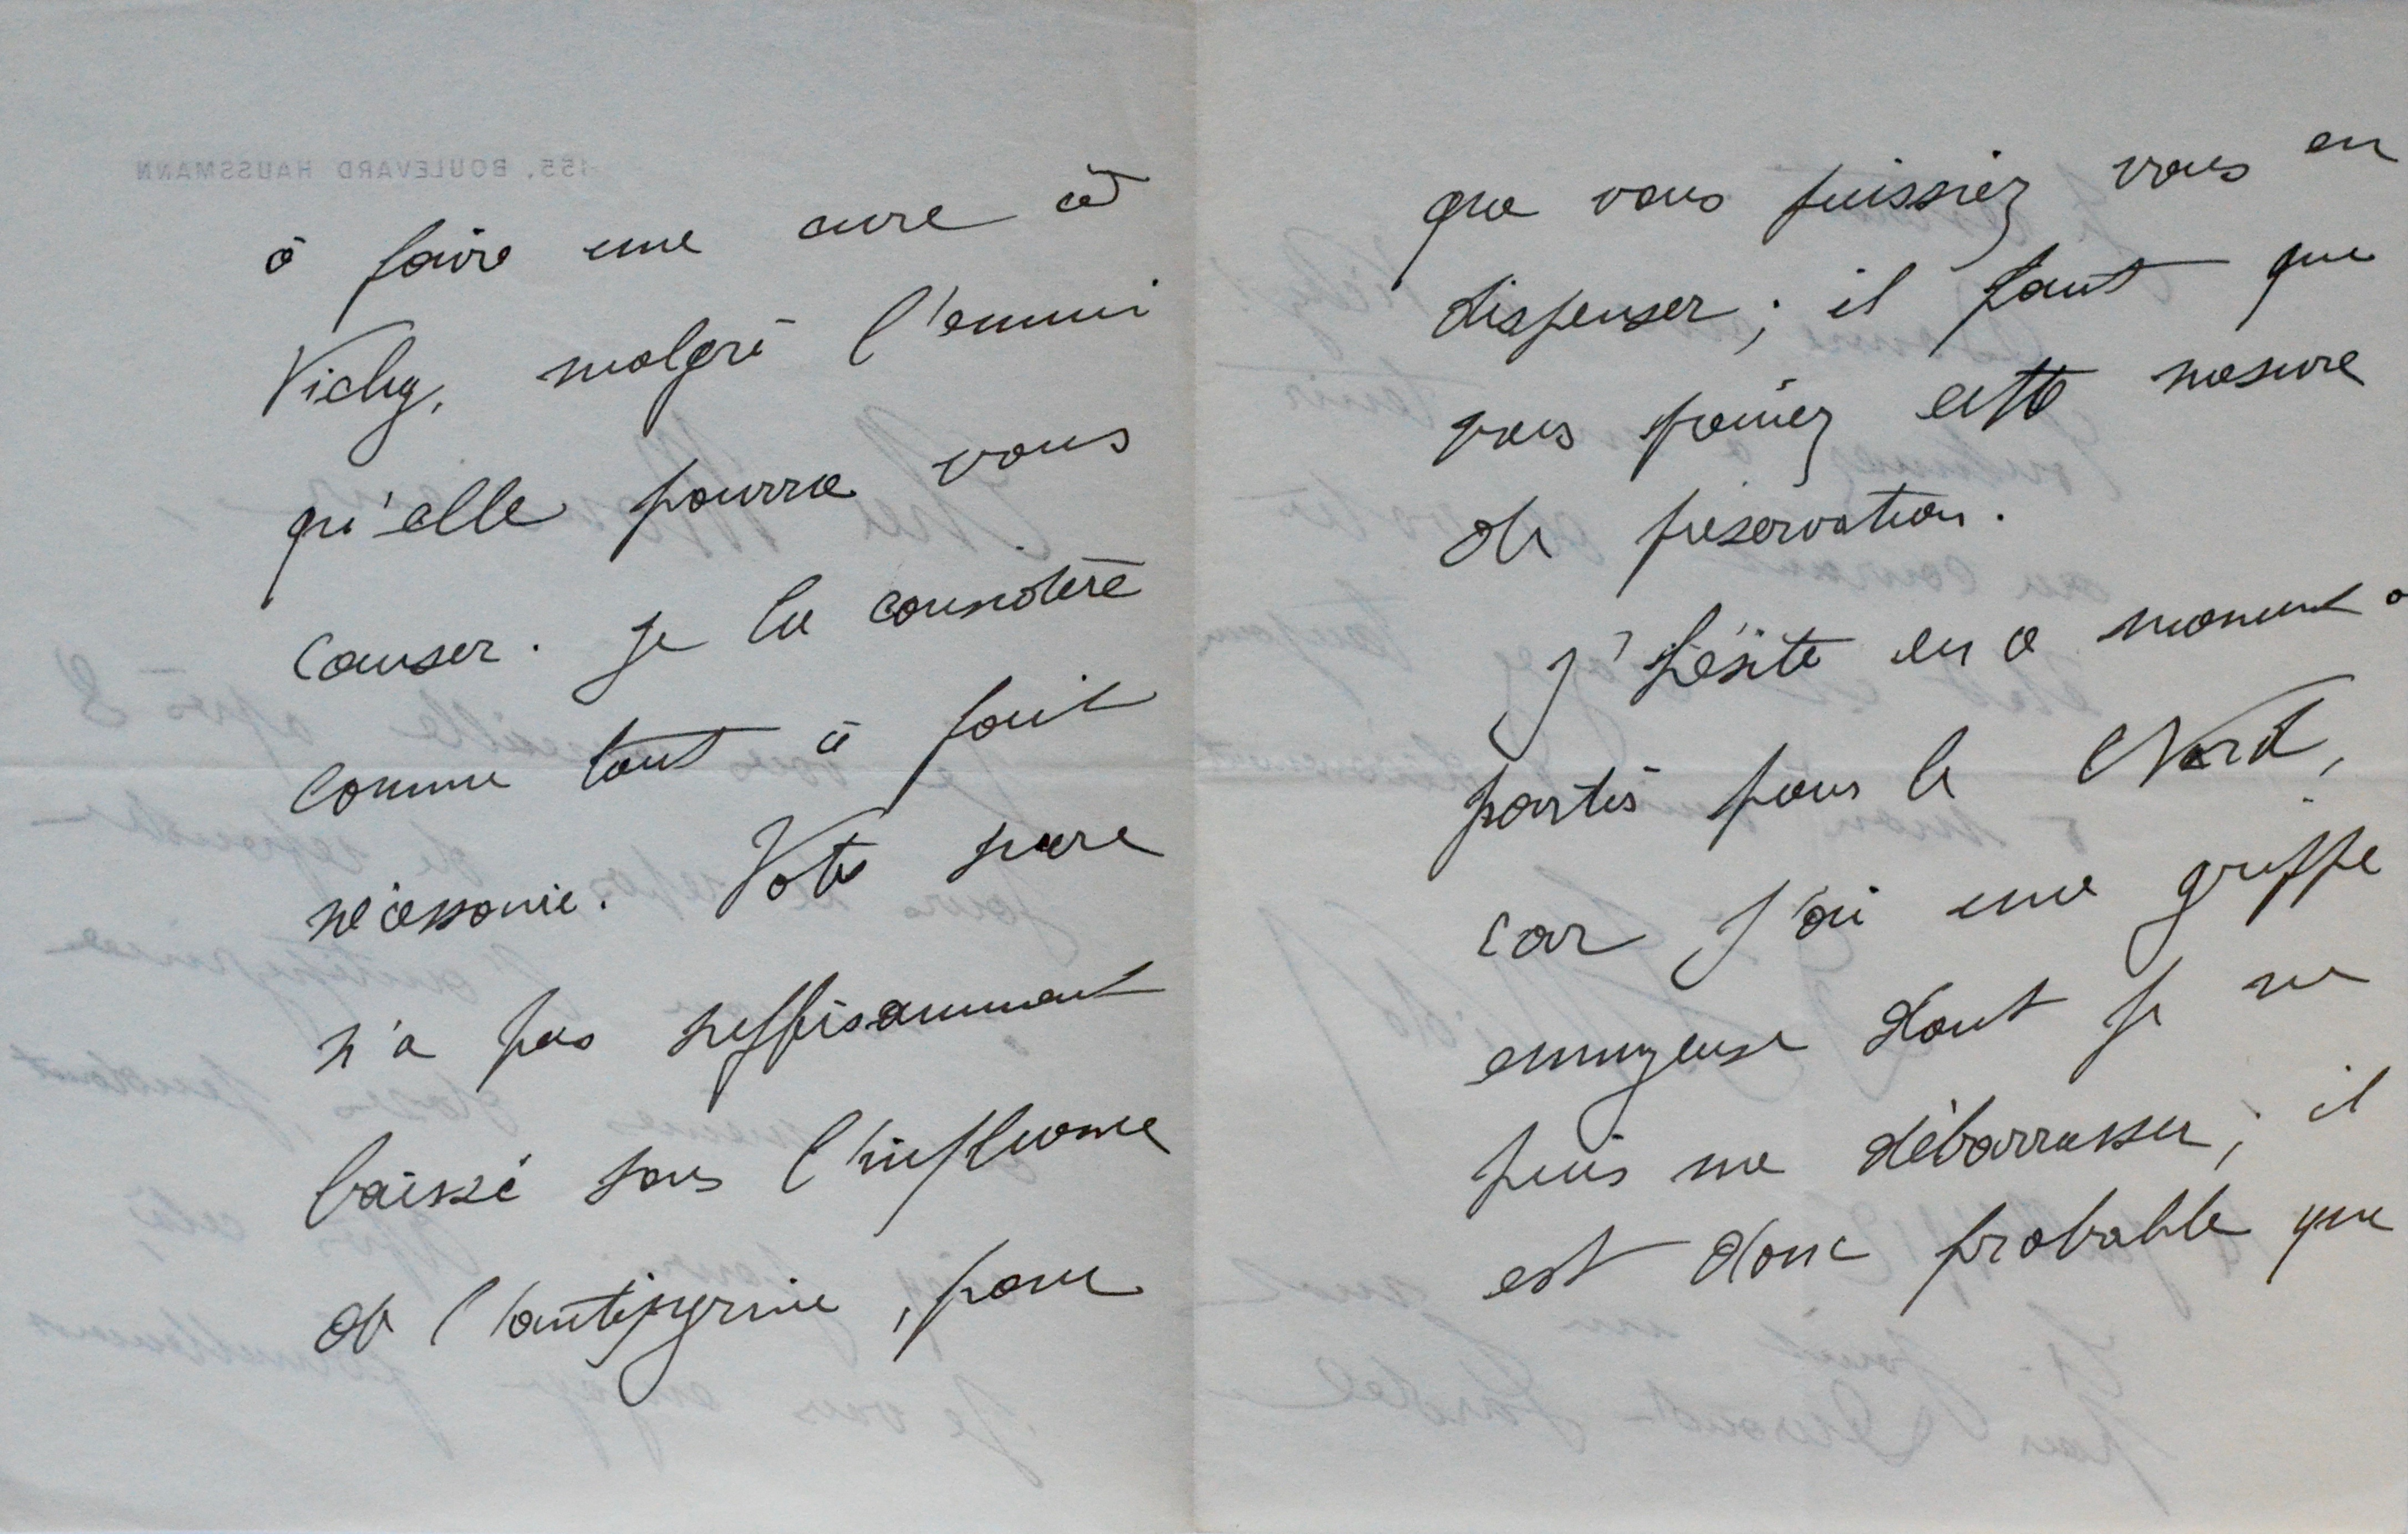 155, BOULEVARD HAUSSMANN
à faire une cure à
Vichy, malgré l'ennui
qu'elle pourra vous
causer. Je la considère
comme tout à fait
nécessaire. Votre sucre
n'a pas suffisamment
baissé sous l'influence
de l'antipyrine, pour
que vous puissiez vous en
dispenser ; il faut que
vous preniez cette mesure
de préservation.
J'hésite en ce moment à
partir pour le Nord,
car j'ai une grippe
ennuyeuse dont je ne
puis me débarrasser ; il
est donc probable que